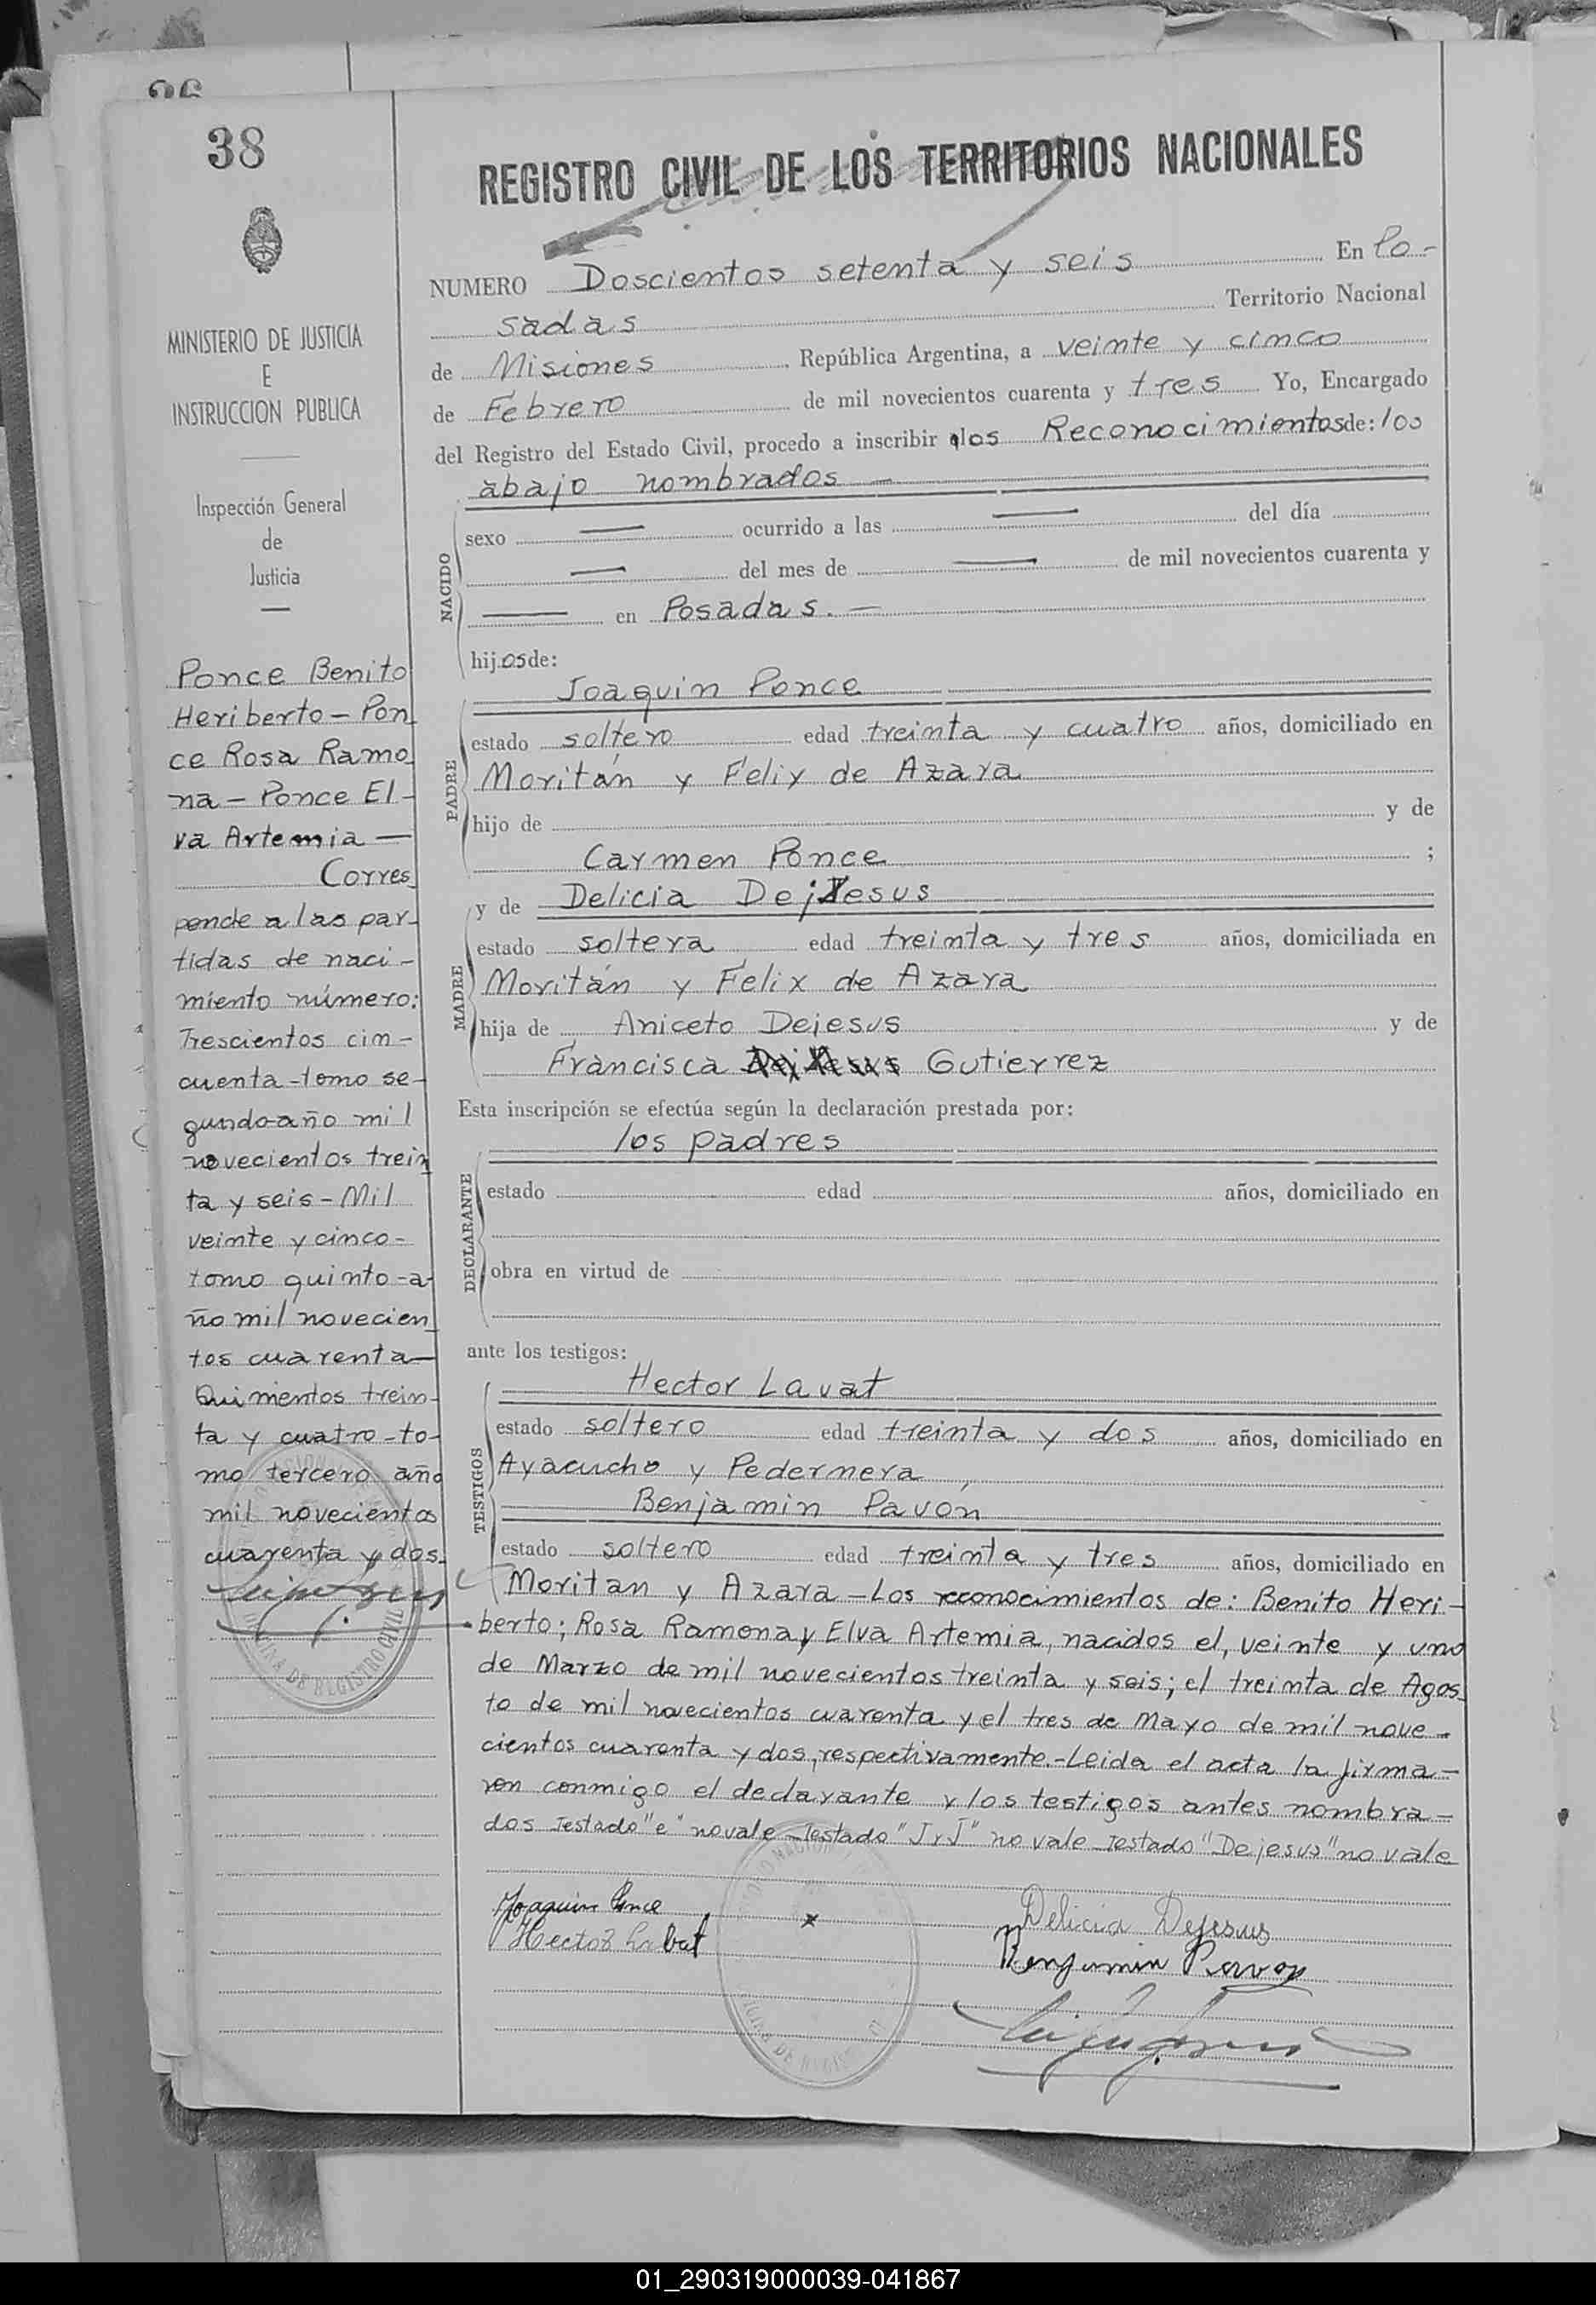 36
38
MINISTERIO DE JUSTICIA
E
INSTRUCCION PUBLICA
Inspección General
de
Justicia
Ponce Benito
Heriberto - Pon
ce Rosa Ramo
na - Ponce El-
va Artemia —
Corres
ponde a las par-
tidas de naci-
miento número:
Trescientos cin-
cuenta - tomo se-
gundo año mil
novecientos trein
ta y seis - Mil
veinte y cinco -
tomo quinto - a-
ño mil novecien
tos cuarenta —
Quinientos trein-
ta y cuatro - to-
mo tercero año
mil novecientos
cuarenta y dos.
REGISTRO CIVIL DE LOS TERRITORIOS NACIONALES
NUMERO Doscientos setenta y seis En Po-
sadas Territorio Nacional
de Misiones República Argentina, a veinte y cinco
de Febrero de mil novecientos cuarenta y tres Yo, Encargado
del Registro del Estado Civil, procedo a inscribir los Reconocimientos de: los
abajo nombrados —
NACIDO
sexo — ocurrido a las — del día
— del mes de — de mil novecientos cuarenta y
— en Posadas. —
hijos de:
Joaquin Ponce
PADRE
estado soltero edad treinta y cuatro años, domiciliado en
Moritán y Felix de Azara
hijo de y de
Carmen Ponce ;
y de Delicia Dejesus
MADRE
estado soltera edad treinta y tres años, domiciliada en
Moritán y Felix de Azara
hija de Aniceto Dejesus y de
Francisca Dejesus Gutierrez
Esta inscripción se efectúa según la declaración prestada por:
los padres
DECLARANTE
estado edad años, domiciliado en
obra en virtud de
ante los testigos:
Hector Lavat
TESTIGOS
estado soltero edad treinta y dos años, domiciliado en
Ayacucho y Pedernera
Benjamin Pavón
estado soltero edad treinta y tres años, domiciliado en
Moritan y Azara - Los reconocimientos de: Benito Heri-
berto; Rosa Ramona y Elva Artemia, nacidos el, veinte y uno
de Marzo de mil novecientos treinta y seis; el treinta de Agos
to de mil novecientos cuarenta y el tres de Mayo de mil nove-
cientos cuarenta y dos, respectivamente. - Leida el acta la firma-
ron conmigo el declarante y los testigos antes nombra-
dos Testado "e" no vale - Testado "J y J" no vale Testado "Dejesus" no vale
Joaquin Ponce Delicia Dejesus
Hector Labat Benjamin Pavon
01_290319000039-041867